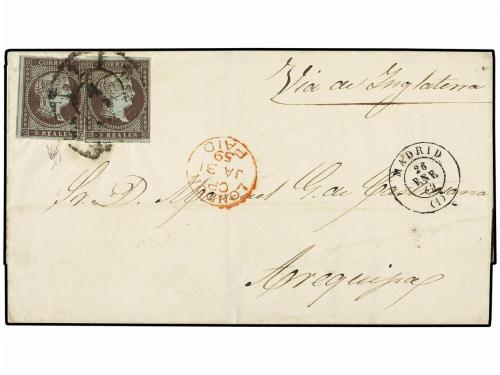 CORREOS CORREOS
2 REALES. 2 REALES.
Via de Inglaterra
LONDON
CP
JA 31
59
PAID
MADRID
26
ENE
(1)
Sr. D. Manuel G. de
Arequipa